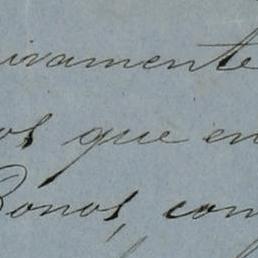 ivamente
os que en
Bonos, com